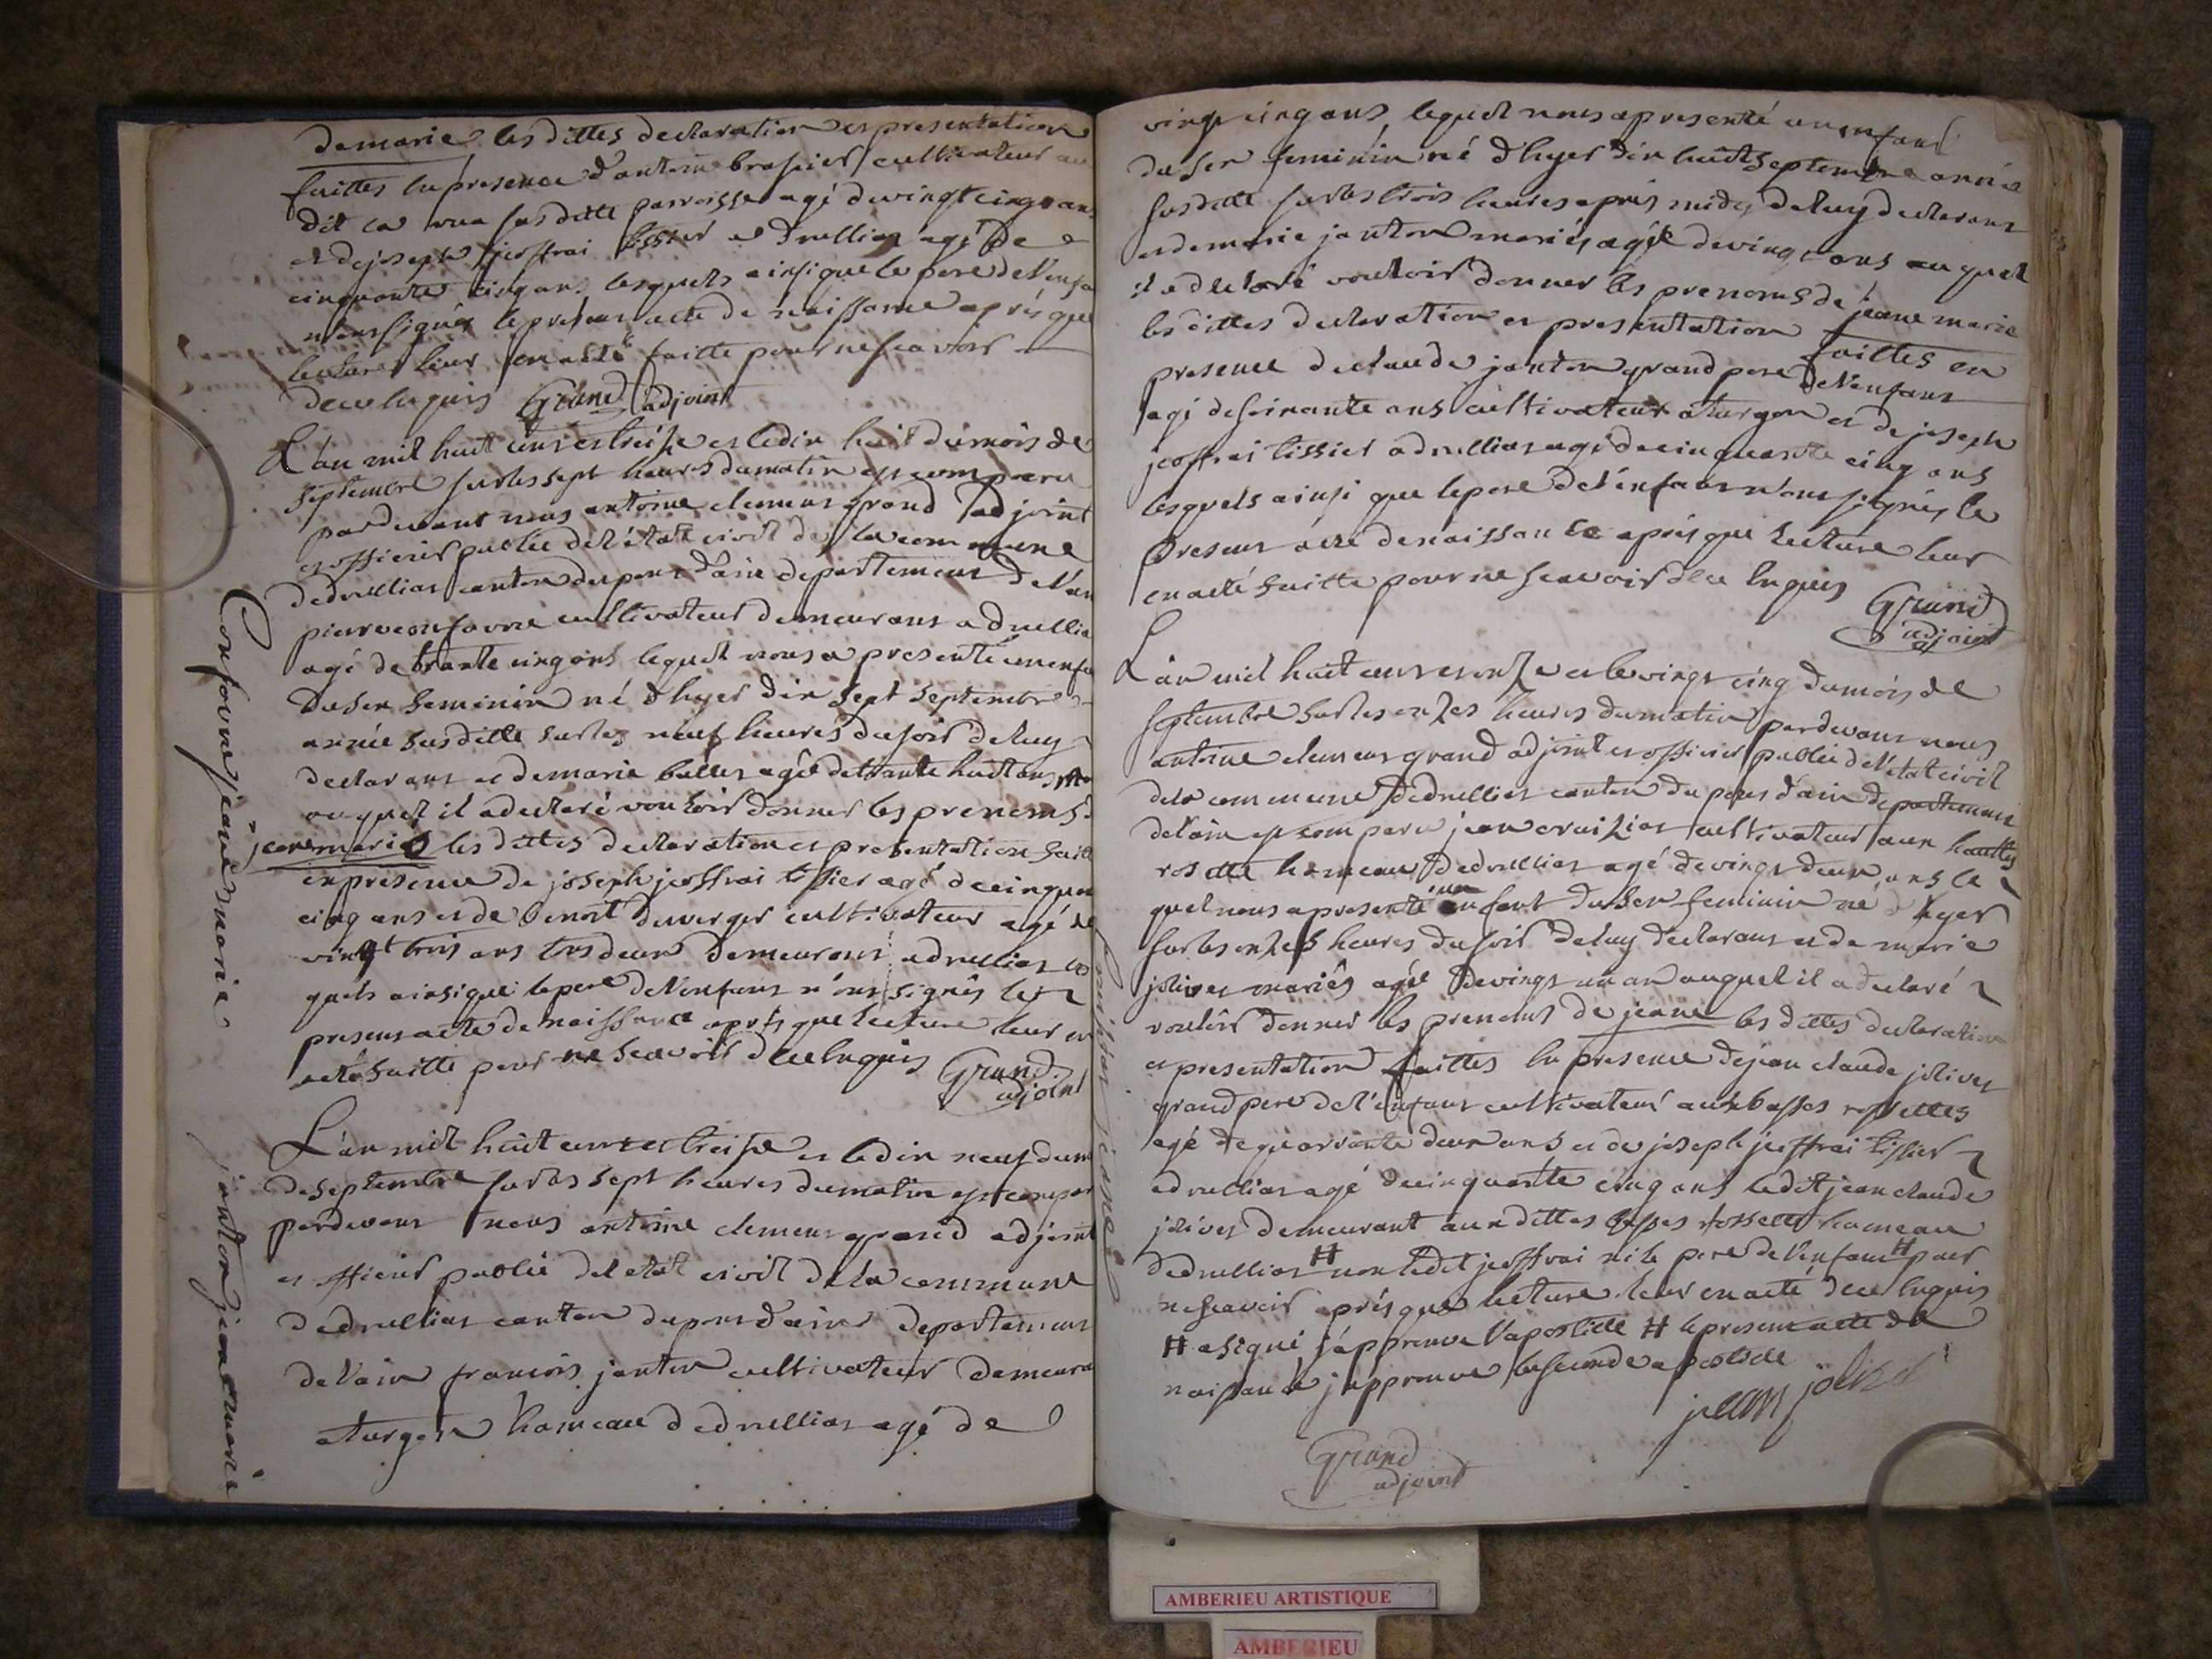 de marie les dittes declaration et presentation
faittes en presence d'antoine brasier cultivateur au
dit la rua susditte parroisse agé de vingt cinq ans
et de joseph jeoffrai tissier a druillias agé de
cinquante cinq ans lesquels ainsi que le pere de l'enfa
n'ont signés le present acte de naissance aprés que
lecture leur en a eté faitte pour ne scavoir
de ce enquis Grand adjoint
L'an mil huit cent et treise et le dix huit du mois de
septembre sur les sept heures du matin est comparu
pardevant nous antoine clement grand adjoint
et officier public de l'état civil de la commune
de druillias canton du pont d'ain departement de l'ain
pierre confavre cultivateur demeurant a druillia
agé de trante cinq ans lequel nous a presenté un enfa
du sex feminin né d'hyer dix sept septembre
année susditte sur les neuf heures du soir de luy
declarant et de marie ballet agée de trante huit ans
auquel il a declaré vouloir donner les prenoms
jeane marie les dittes declaration et presentation faitt
en presence de joseph jeoffrai tissier agé de cinquan
cinq ans et de benoit duverger cultivateur agé de
vingt trois ans tous deux demeurant a druillias les
quels ainsi que le pere de l'enfant n'ont signés le
present acte de naissance aprés que lecture leur en
a eté faitte pour ne scavoir de ce enquis Grand
adjoint
L'an mil huit cent et treise et le dix neuf du m
de septembre sur les sept heures du matin est compar
pardevant nous antoine clement grand adjoint
et officier public de l'etat civil de la commune
de druillias canton du pont d'ain departement
de l'ain francois janton cultivateur demeura
a turgon hameau de druillias agé de
Confavre jeane marie
janton jeane marie
vingt cinq ans lequel nous a presenté un enfant
du sex feminin né d'hyer dix huit septembre année
susditte sur les trois heures aprés midy de luy declarant
et de marie janton mariés agée de vingt ans auquel
il a declaré vouloir donner les prenoms de jeane marie
les dittes declaration et presentation faittes en
presence de claude janton grand pere de l'enfant
agé de soixante ans cultivateur a turgon et de joseph
jeoffrai tissier a druillias agé de cinquante cinq ans
lesquels ainsi que le pere de l'enfant n'ont signés le
present acte de naissance aprés que lecture leur
en a eté faitte pour ne scavoir de ce enquis Grand
adjoint
L'an mil huit cent et onze et le vingt cinq du mois de
septembre sur les onzes heures du matin pardevant nous
antoine clement grand adjoint et officier public de l'etat civil
de la commune de druillias canton du pont d'ain departement
de l'ain est comparu jean cultivateur aux hauttes
rosette hameau de druillias agé de vingt deux ans le
quel nous a presenté un enfant du sex feminin né d'hyer
sur les onzes heures du soir de luy declarant et de marie
jolivet mariés agée de vingt un an auquel il a declaré
vouloir donner les prenoms de jeane les dittes declaration
et presentation faittes en presence de jean claude jolivet
grand pere de l'enfant cultivateur aux basses rossettes
agé de quarante deux ans et de joseph jeoffrai tissier
a druillias agé de cinquante cinq ans ledit jean claude
jolivet demeurant aux dittes basses rossette hameau
de druillias # non ledit jeoffrai ni le pere de l'enfant # pour
ne scavoir aprés que lecture leur en a eté de ce enquis
# a signé j'approuve l'apostille # le present acte de
naissance j'approuve la seconde apostille
jean jolivet
Grand
adjoint
jeane
AMBERIEU ARTISTIQUE
AMBERIEU